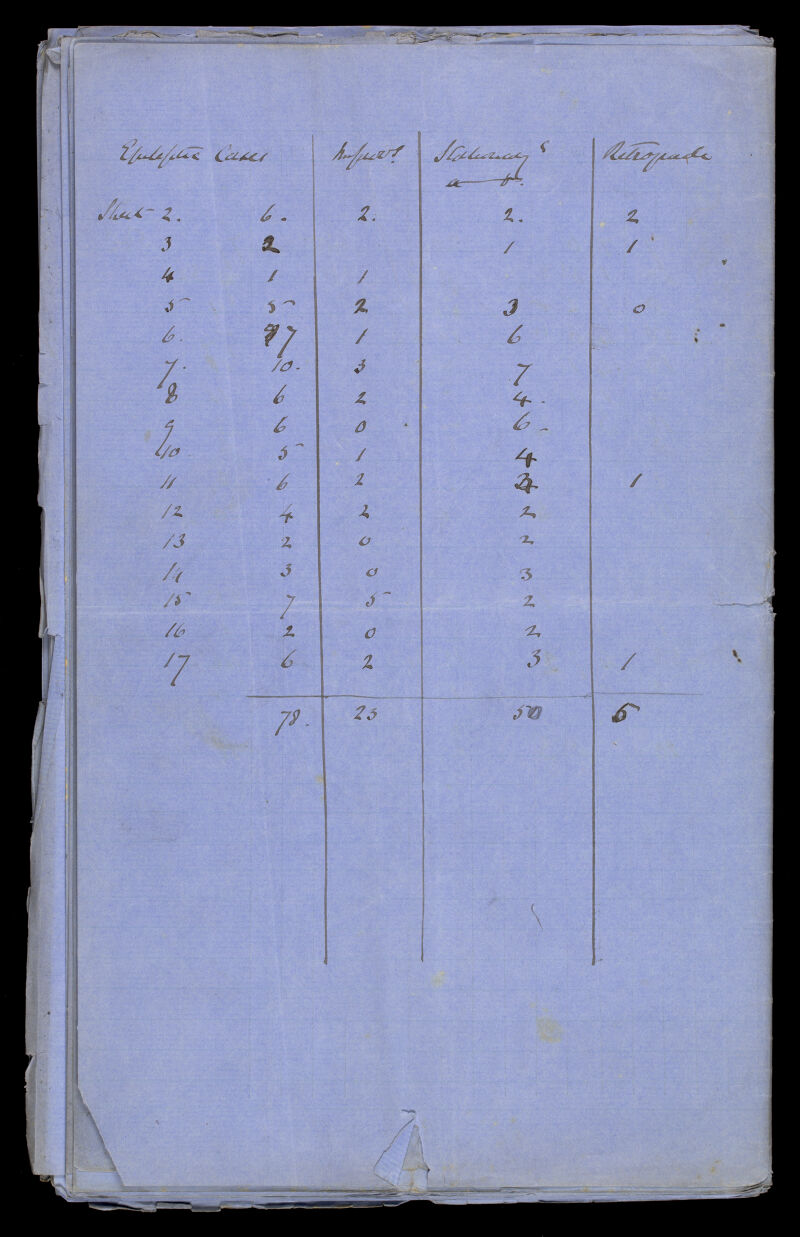 Epileptic Cases Improvt. Stationary Retrograde
Sheet 2. 6. 2. 2. 2
3 2 1 1
4 1 1
5 5 2 3 0
6. 7 1 6
7. 10. 3 7
8 6 2 4.
9 6 0 6
10 5 1 4
11 6 2 3 1
12 4 2 2
13 2 0 2
14 3 0 3
15 7 5 2
16 2 0 2
17 6 2 3 1
78. 23 50 5